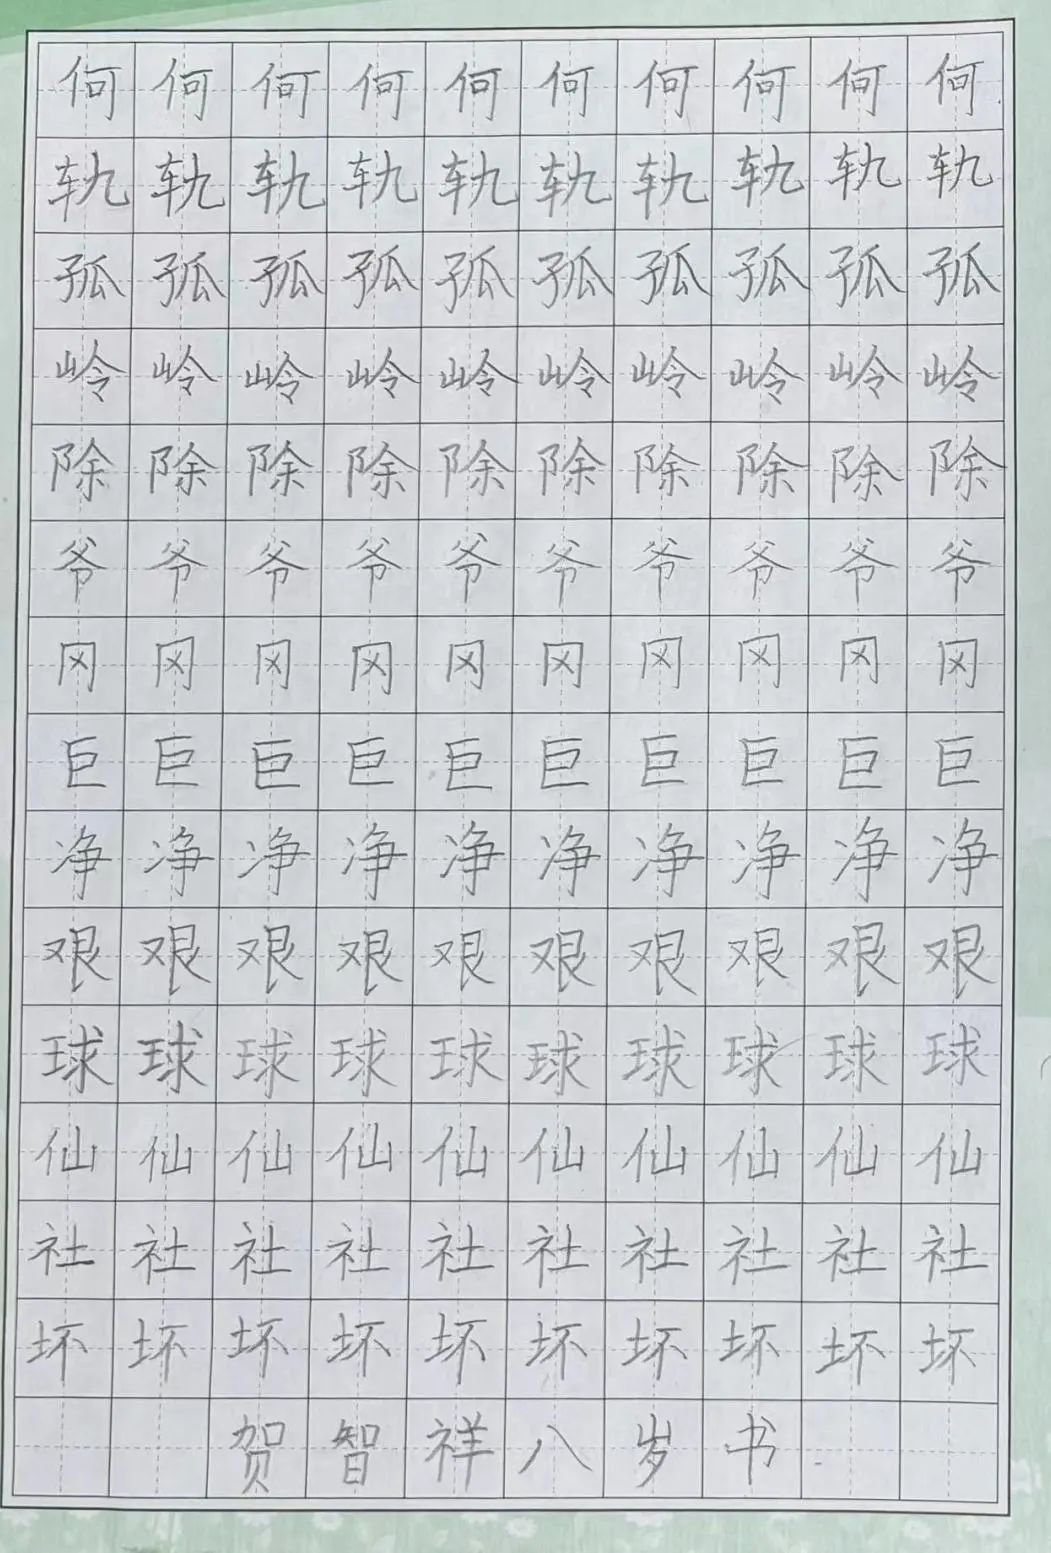 何何何何何何何何何何
轨轨轨轨轨轨轨轨轨轨
孤孤孤孤孤孤孤孤孤孤
岭岭岭岭岭岭岭岭岭岭
除除除除除除除除除除
爷爷爷爷爷爷爷爷爷爷
冈冈冈冈冈冈冈冈冈冈
巨巨巨巨巨巨巨巨巨巨
净净净净净净净净净净
艰艰艰艰艰艰艰艰艰艰
球球球球球球球球球球
仙仙仙仙仙仙仙仙仙仙
社社社社社社社社社社
坏坏坏坏坏坏坏坏坏坏
贺智祥八岁书